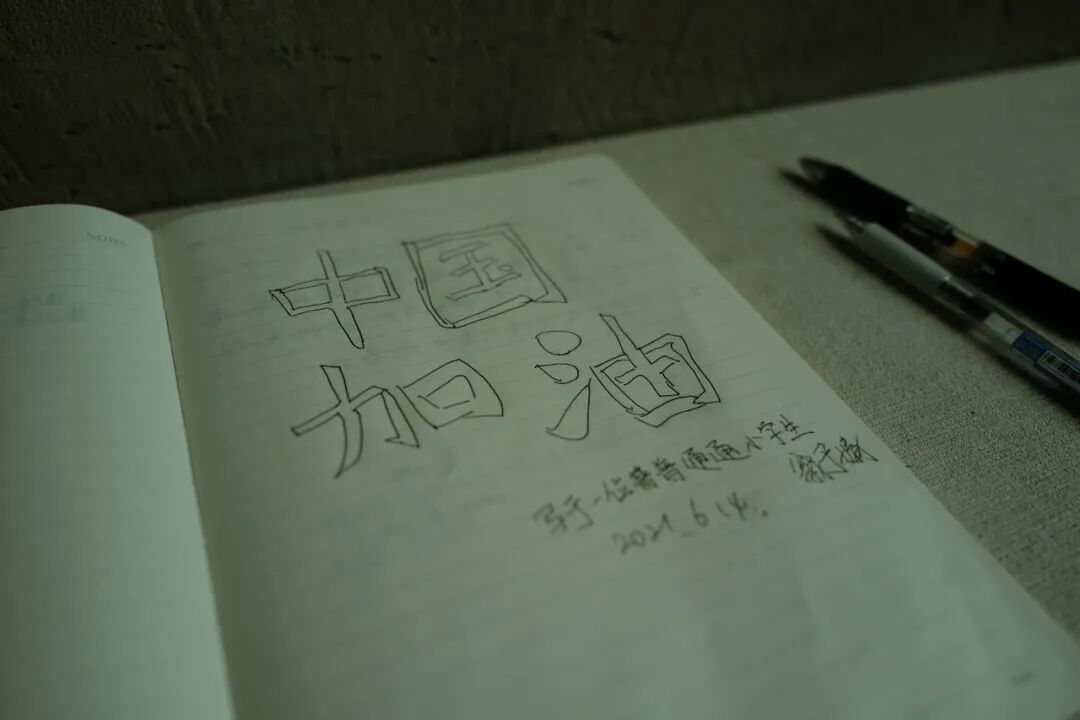 NOTES
中国
加油
写于一位普普通通小学生
2021.6.14.